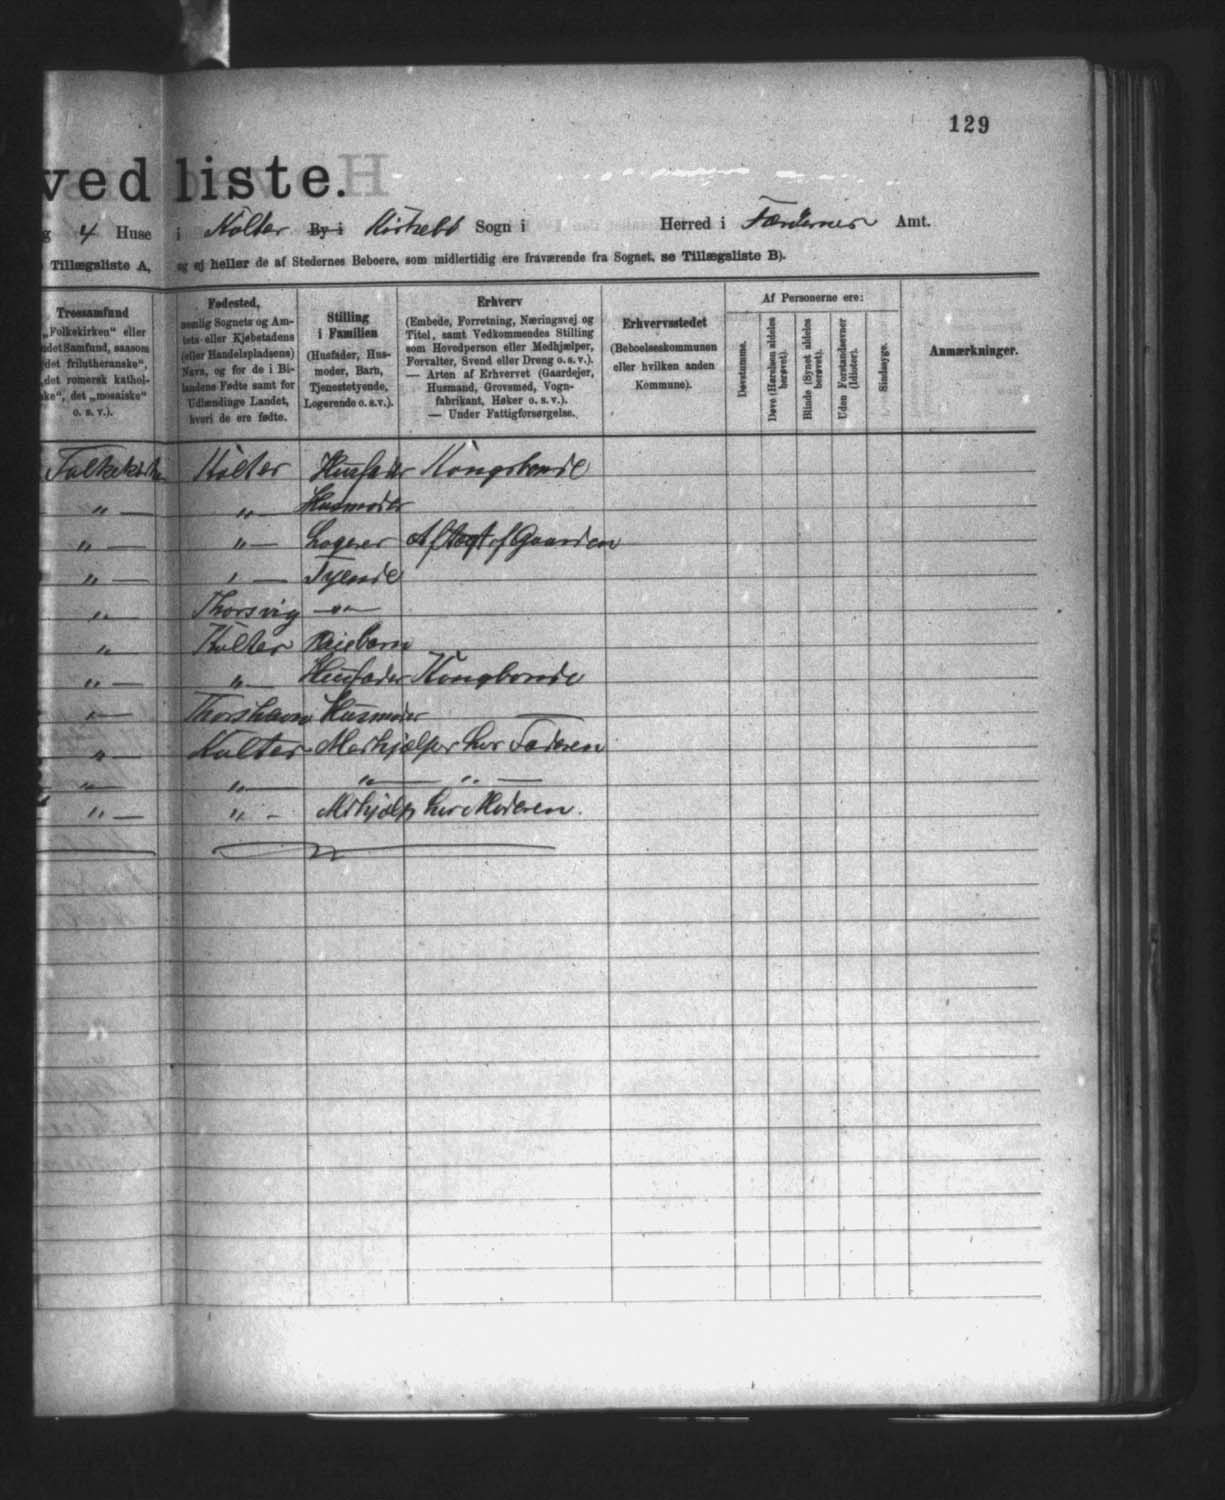 129
ved liste.
g 4 Huse i Kolter By i Kirkebø Sogn i Herred i Færøernes Amt.
Tillægsliste A, og ej heller de af Stedernes Beboere, som midlertidig ere fraværende fra Sognet, se Tillægsliste B).
Trossamfund
„Folkekirken" eller
det Samfund, saasom
det frilutheranske",
det romersk kathol-
ke", det „mosaiske"
o. s. v.).
Fødested,
nemlig Sognets og Am-
tets eller Kjøbstadens
(eller Handelspladsens)
Navn, og for de i Bi-
landene Fødte samt for
Udlændinge Landet,
hvori de ere fødte.
Stilling
i Familien
(Husfader, Hus-
moder, Barn,
Tjenestetyende,
Logerende o. s. v.).
Erhverv
(Embede, Forretning, Næringsvej og
Titel, samt Vedkommendes Stilling
som Hovedperson eller Medhjælper,
Forvalter, Svend eller Dreng o. s. v.).
— Arten af Erhvervet (Gaardejer,
Husmand, Grovsmed, Vogn-
fabrikant, Høker o. s. v.).
— Under Fattigforsørgelse.
Erhvervsstedet
(Beboelseskommunen
eller hvilken anden
Kommune).
Af Personerne ere:
Døvstumme.
Døve (Hørelsen aldeles
berøvet).
Blinde (Synet aldeles
berøvet).
Uden Forstandsevner
(Idioter).
Sindssyge.
Anmærkninger.
Folkekirken Kolter Husfader Kongsbonde
„ — „ — Husmoder
„ — „ — Logerer Aftægt af Gaarden
„ — „ — Tyende
„ Thorsvig — „ —
„ Kolter Pleiebarn
„ — „ — Husfader Kongsbonde
„ — Thorshavn Husmoder —
„ — Kolter Medhjælper hos Faderen
„ — „ — „ — „ —
„ — „ - Mdhjælp hos Moderen.